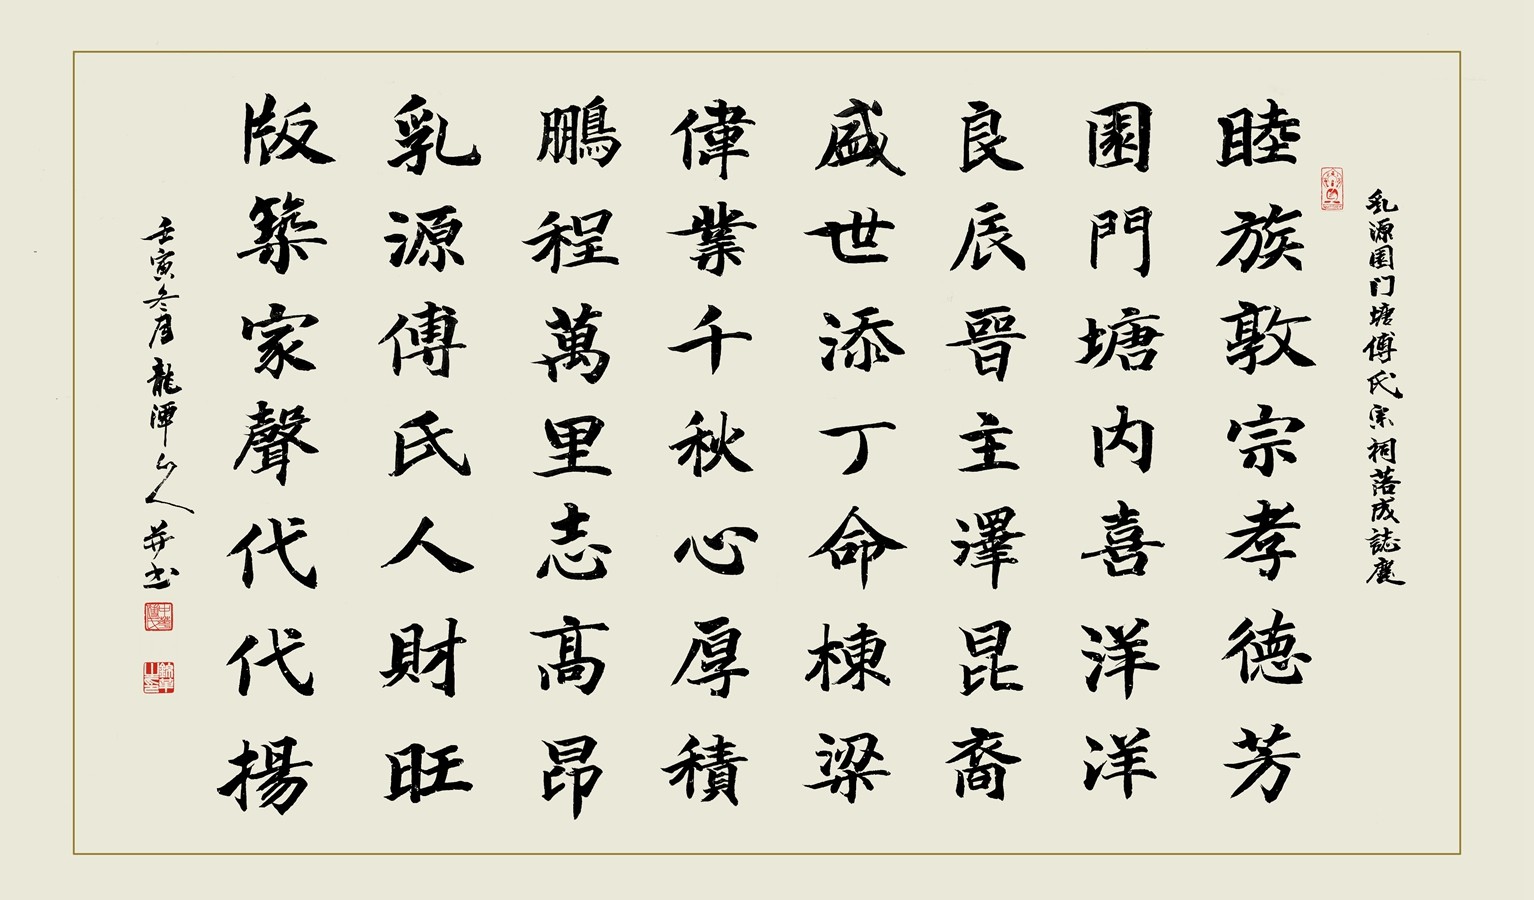 乳源園门塘傅氏宗祠落成誌慶
睦族敦宗孝德芳
園門塘内喜洋洋
良辰晉主澤昆裔
盛世添丁命棟梁
偉業千秋心厚積
鵬程萬里志高昂
乳源傅氏人財旺
版築家聲代代揚
壬寅冬月龍潭山人并书